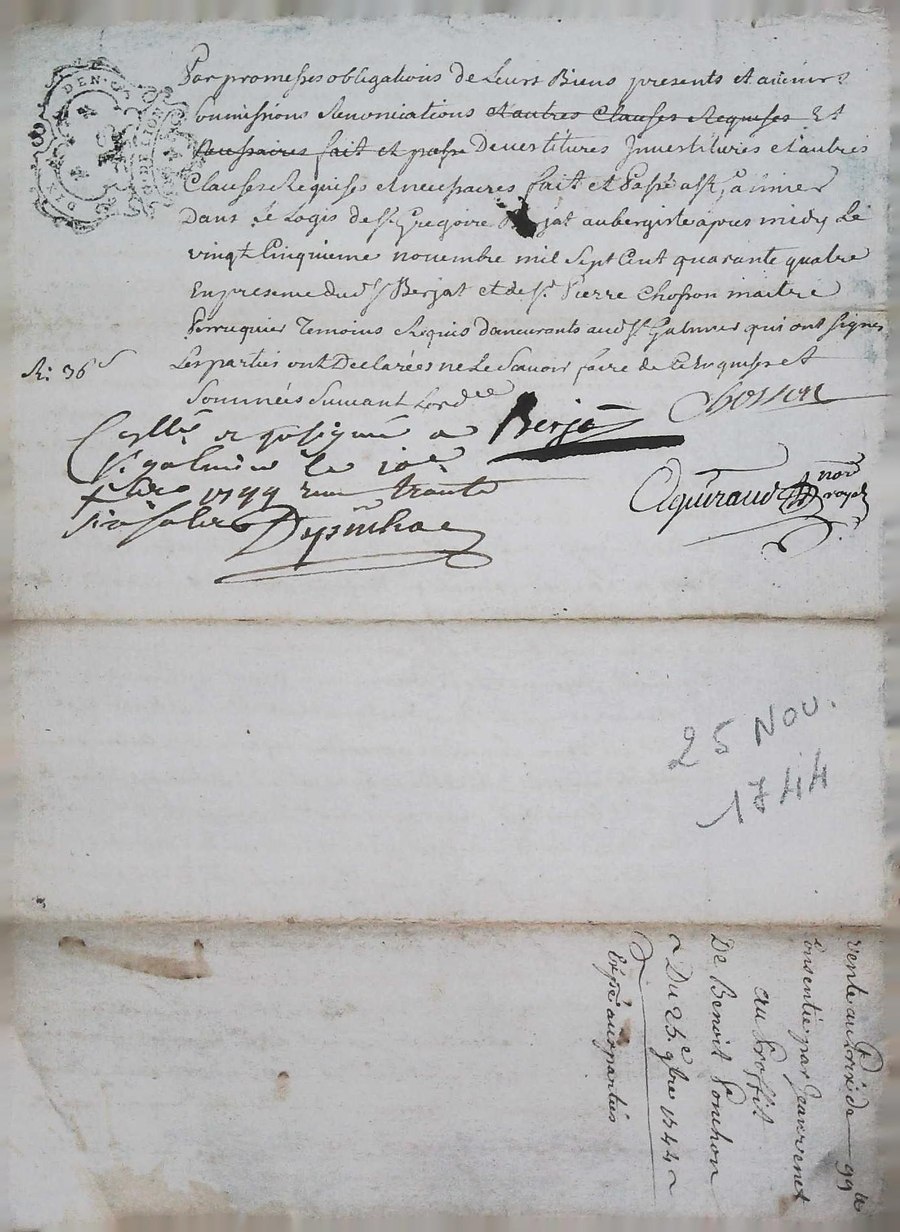 Par promesses obligations de Leurs Biens presents et avenirs
Soumissions Renonciations et autres Clauses Requises Et
necessaires fait et passé Devestitures Investitures et autres
Clauses Requises et necessaires fait et Passé a St Galmier
Dans Le Logis de Sr Gregoire Berjat aubergiste apres midy Le
vingt Cinquieme novembre mil Sept Cent quarante quatre
En presence dud Sr Berjat et de Sr Pierre Chosson maitre
Perruquier Temoins Requis demeurants aud St Galmier qui ont signés
Les parties ont Declarées ne Le Scavoir faire de ce Enquises et
Sommées Suivant Lord ce
R: 36 s
Berjat
Chosson
St galmier le
1744
nore royal
DIX DEN.
25 NOV.
1744
vente au Prix de 99 ll
Consentie par Jean
au Proffit
De Benoit Ponchon
Du 25 e 9bre 1744
aux parties